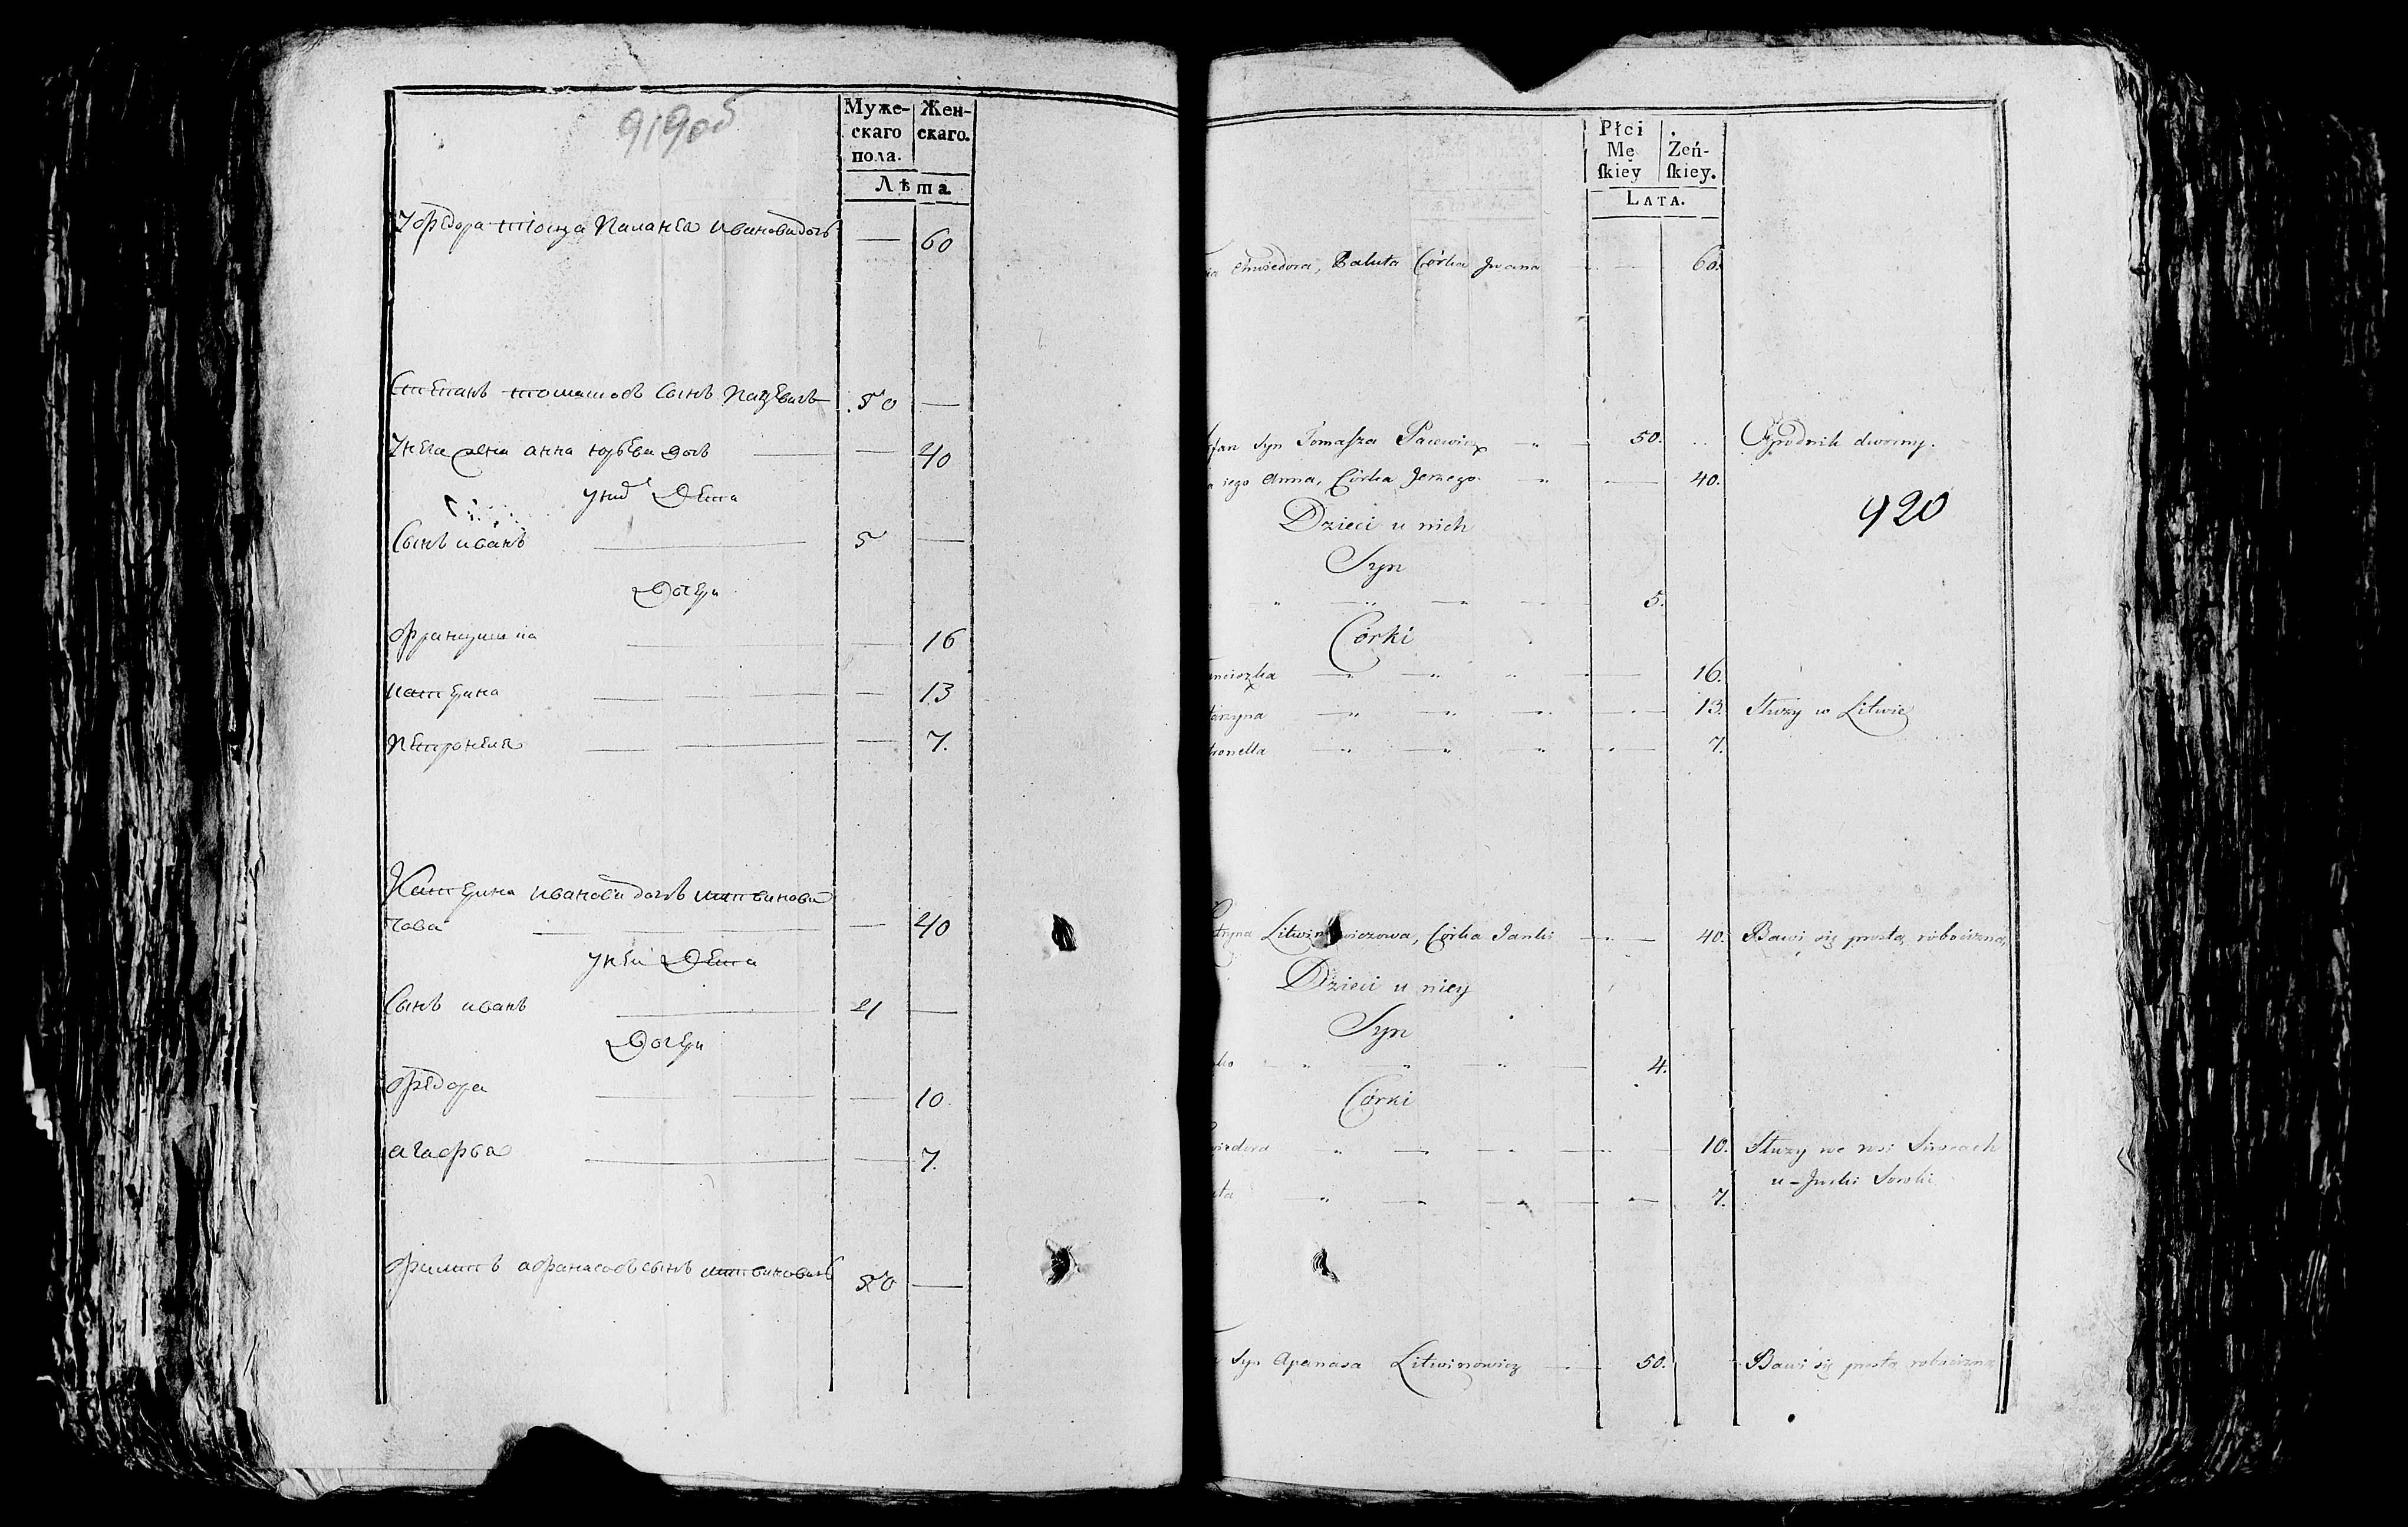 919об
Муже-
скаго
пола.
Жен-
скаго.
Лѣта.
У Федора теща Паланея Иванова дочь — 60
Степанъ томашовъ сынъ Пацевичъ 50 —
У него жена анна юрьева дочь — 40
у них дети
Сынъ иванъ 5 —
Дочери
Францишка — 16
катерина — 13
Петронеля — 7.
Катерина иванова дочь литвинови
чова — 40
у неи дети
Сынъ иванъ 4 —
Дочери
Федора — 10.
агафья — 7.
Филипъ афанасовъ сынъ литвиновичъ 50 —
Płci
Mę
skiey
Zeń-
skiey.
LATA.
Chwiedora, Paluta Córka Jwana 60.
fan Syn Tomasza Pacewicz 50. Ogrodnik dworny.
iego Anna, Córka Jerzego 40.
920
Dzieci u nich
Syn
5.
Córki
nciszka 16.
tarzyna 13. Służy w Litwie
tronella 7.
tryna Litwinowiczowa, Córka Janki 40. Bawi się prostą robocizną
Dzieci u niey
Syn
ko 4.
Córki
wiedora 10. Służy we wsi
u
ta 7.
Syn Apanasa Litwinowicz 50. Bawi się prostą robocizną